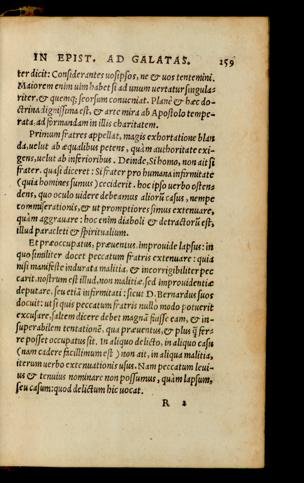 IN EPIST. AD GALATAS. 159
ter dicit: Considerantes uosipsos, ne & uos tentemini.
Maiorem enim uim habet si ad unum uertatur singula-
riter, & quemq; seorsum conueniat. Planè & hæc do-
ctrina dignissima est, & arte mira ab Apostolo tempe-
rata, ad formandam in illis charitatem.
Primum fratres appellat, magis exhortatione blan
da, uelut ab æqualibus petens, quàm authoritate exi-
gens, uelut ab inferioribus. Deinde, Si homo, non ait si
frater. quasi diceret: Si frater pro humana infirmitate
(quia homines sumus) ceciderit. hoc ipso uerbo osten
dens, quo oculo uidere debeamus aliorũ casus, nempe
commiserationis, & ut promptiores simus extenuare,
quàm aggrauare: hoc enim diaboli & detractorũ est,
illud paracleti & spiritualium.
Et præoccupatus, præuentus. improuide lapsus: in
quo similiter docet peccatum fratris extenuare: quia
nisi manifeste indurata malitia, & incorrigibiliter pec
carit. nostrum est illud, non malitiæ, sed improuidentiæ
deputare, seu etiã infirmitati: sicut D. Bernardus suos
docuit: ut si quis peccatum fratris nullo modo potuerit
excusare, saltem dicere debet magnã fuisse eam, & in-
superabilem tentationẽ. qua præuentus, & plus q̃ fer-
re posset occupatus sit. In aliquo delicto, in aliquo casu
(nam cadere facillimum est) non ait, in aliqua malitia,
iterum uerbo extenuationis usus. Nam peccatum leui-
us & tenuius nominare non possumus, quàm lapsum,
seu casum: quod delictum hic uocat.
R 2